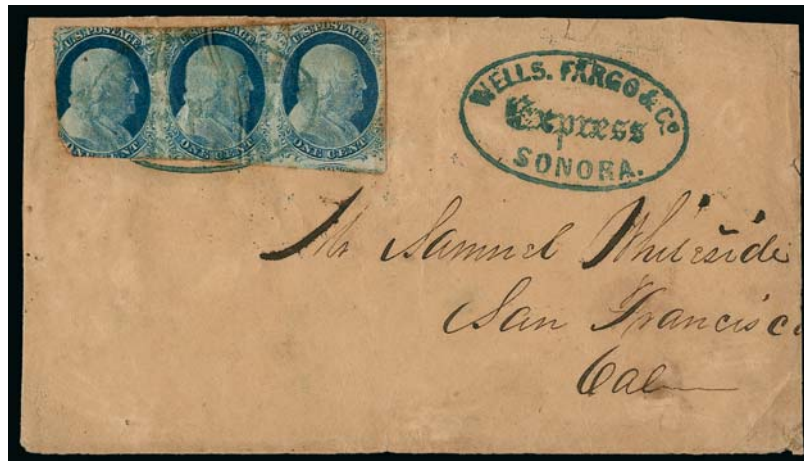 U.S. POSTAGE U.S. POSTAGE U.S. POSTAGE
ONE CENT. ONE CENT. ONE CENT.
WELLS, FARGO & Co
Express
SONORA.
Mr Samuel Whiteside
San Francisco
Cal